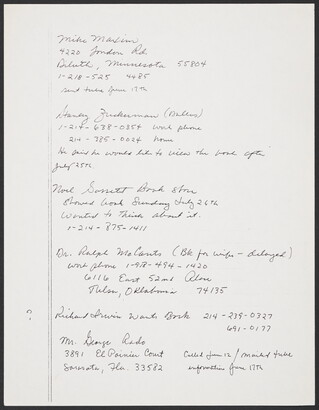 Mike Maxim
4220 London Rd.
Duluth, Minnesota 55804
1-218-525 4485
sent tube June 17th
Harvey Zuckerman (Dallas)
1-214-638-0354 work phone
214-385-0024 home
He said he would like to view the book after
July 25th.
Noel Book Store
Showed book Sunday July 26th
Wanted to think about it.
1-214-875-1411
Dr. Ralph McCants (Bk for wife - delayed)
work phone 1-918-494-1420
6116 East 52nd Place
Tulsa, Oklahoma 74135
Richard Irwin Wants Book 214-239-0327
691-0177
Mr. George Rado
3891 El Court Called June 12 / Mailed tube
Sarasota, Fla. 33582 information June 17th